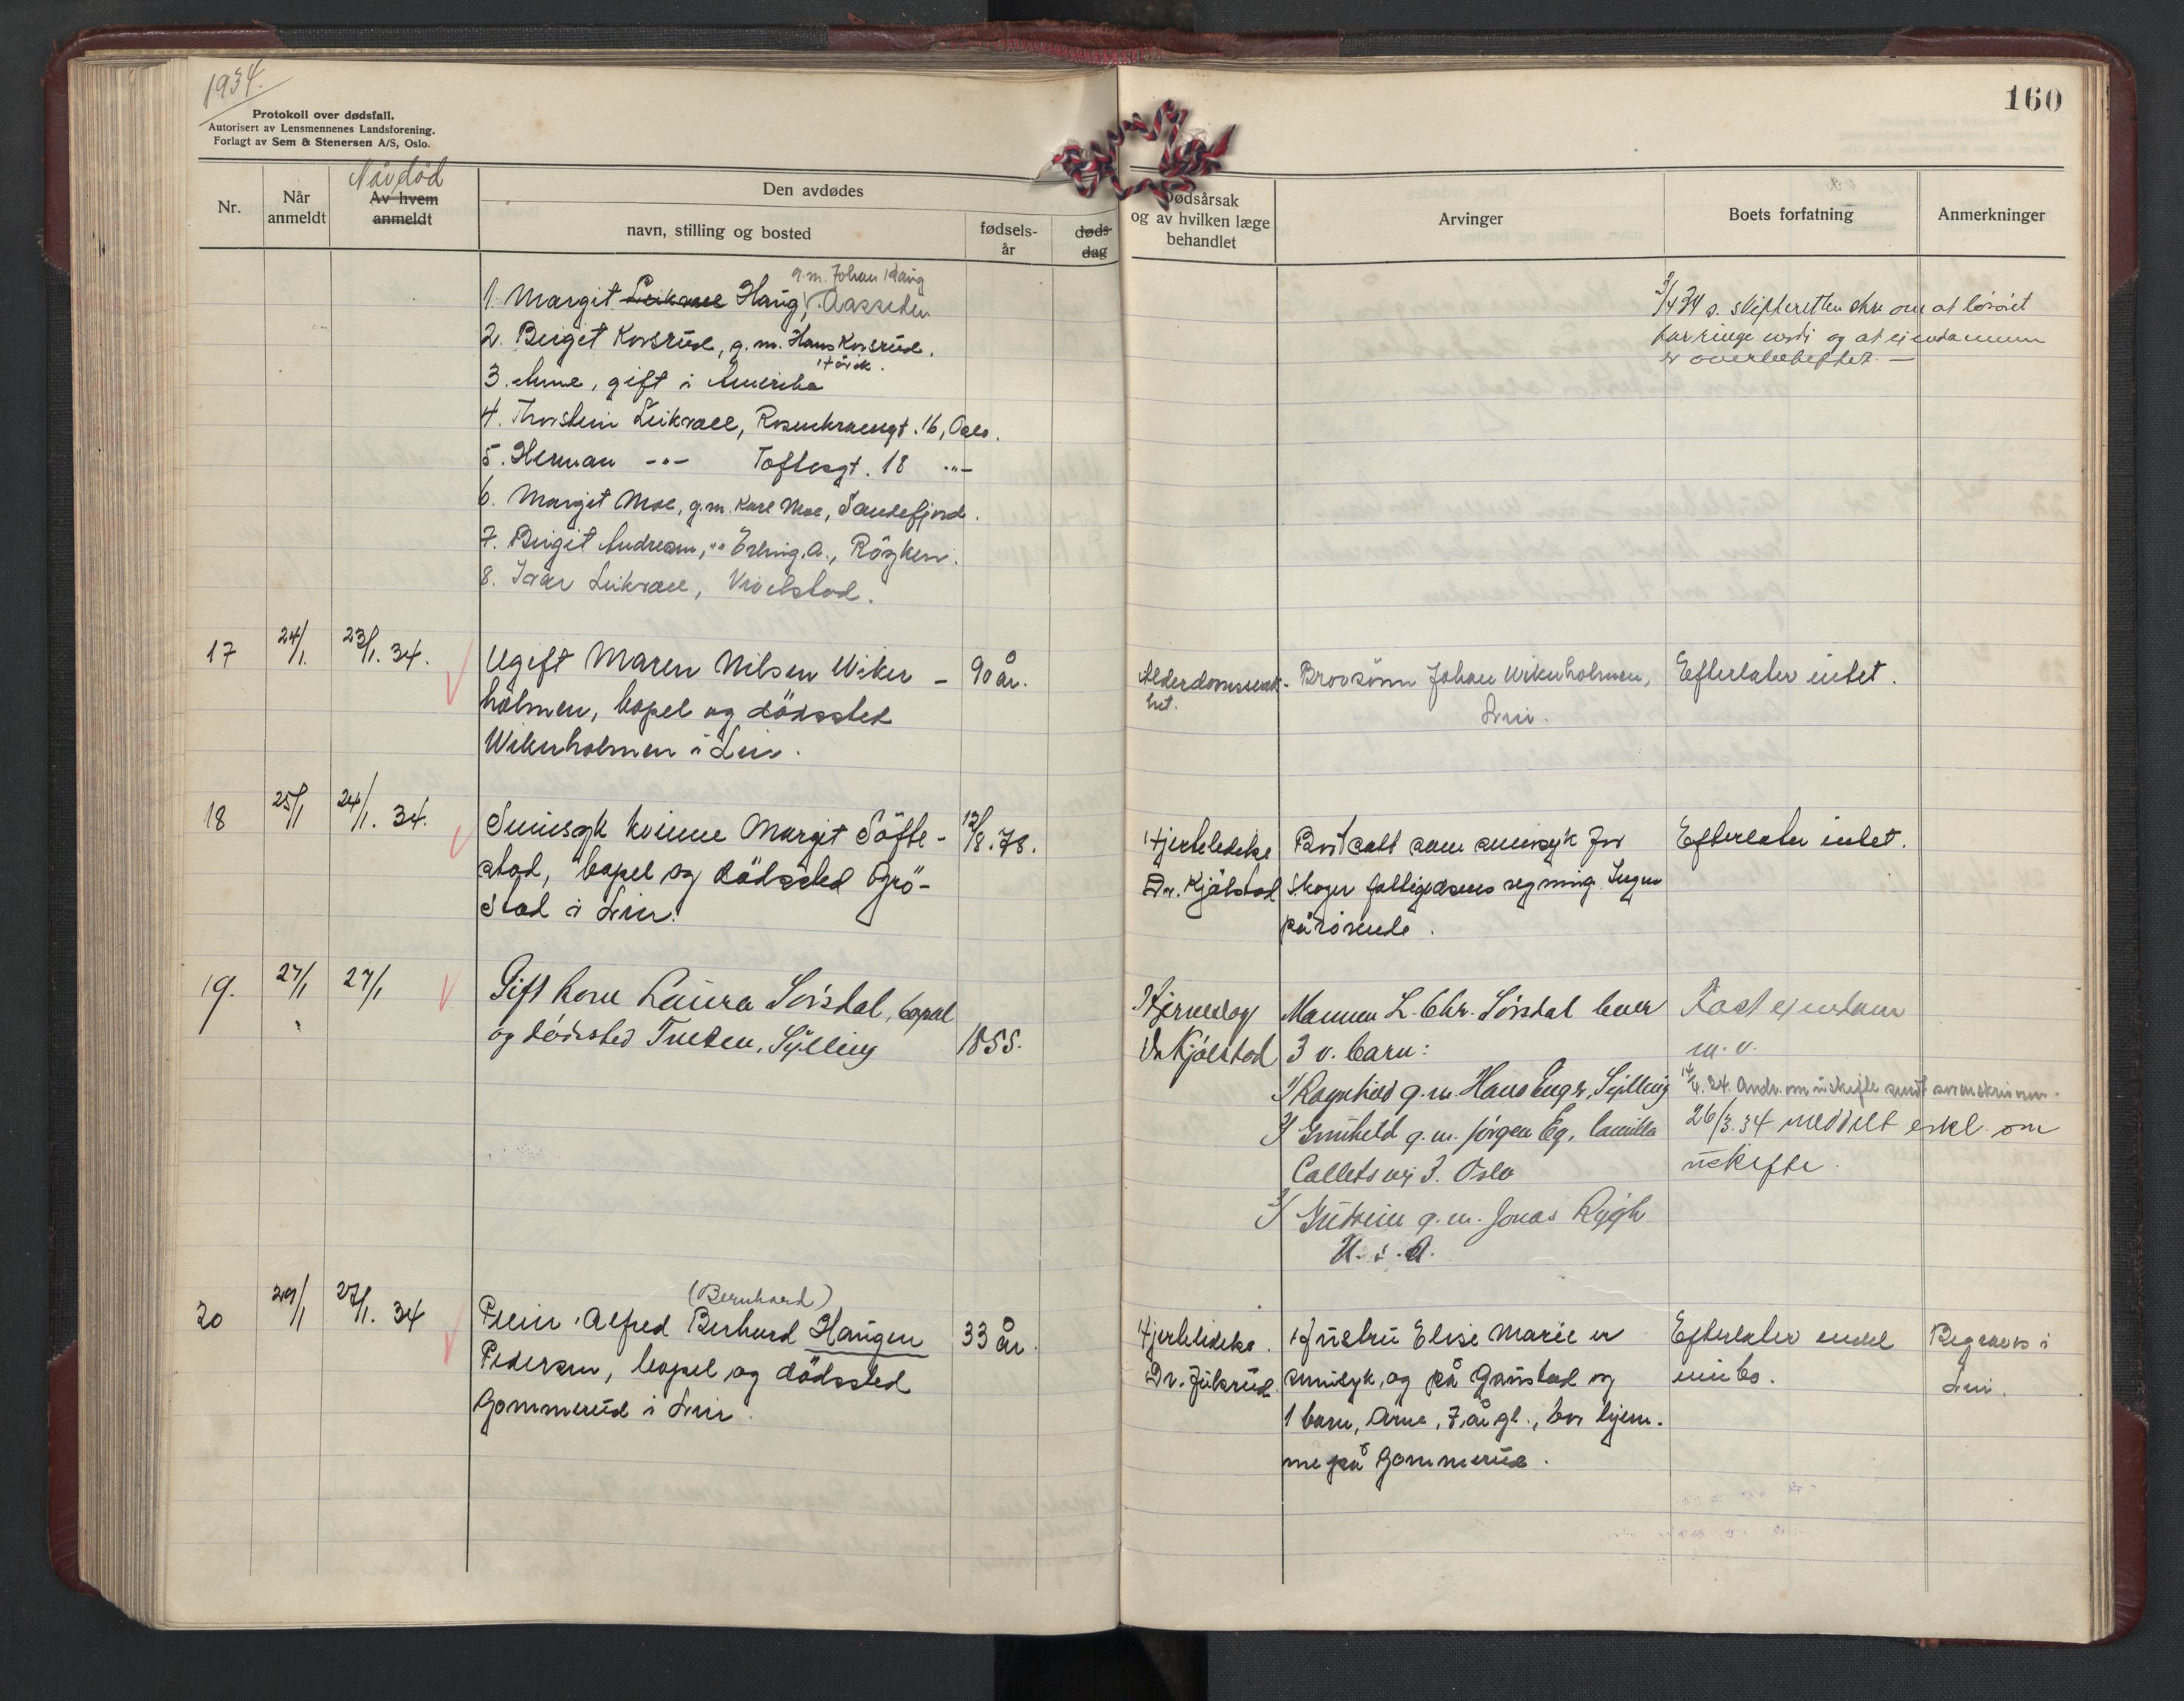 1934.
Protokoll over dødsfall.
Autorisert av Lensmennenes Landsforening.
Forlagt av Sem & Stenersen A/S, Oslo.
160
Nr.
Når
anmeldt
Når død
Av hvem
anmeldt
Den avdødes
navn, stilling og bosted
fødsels-
år
døds
dag
Dødsårsak
og av hvilken læge
behandlet
Arvinger
Boets forfatning
Anmerkninger
g.m. Johan Haug
1. Margit Leikvoll Haug, Aasseden
2. Birgit Korsrud, g.m. Hans Korsrud.
Hörik.
3. Anne, gift i Amerika
4. Thorstein Leikvoll, Rosenkransgt. 16, Oslo.
5. Herman -"- Toftesgt. 18 -"-
6. Margit Moe, g.m. Karl Moe, Sandefjord.
7. Birgit Andresen, " Erling A., Röyken.
8. Ivar Leikvoll,
3/4 34 s. skifteretten skr om at lösöret
har ringe verdi og at eiendommen
er overbeheftet. —
17
24/1.
23/1. 34.
Ugift Maren Nilsen Wiker -
holmen, bopel og dödssted
Wikerholmen i Lier.
90 år.
Alderdomssvak-
het.
Brorsönn Johan Wikerholmen,
Lier.
Efterlater intet.
18
25/1
24/1. 34.
Sinnsyk kvinne Margit Söfte-
stad, bopel og dödssted Grö-
stad i Lier.
12/8. 78.
Hjertelidelse
Dr. Kjölstad
Bortsatt som sinnsyk for
Skoger fattigvesens regning. Ingen
pårörende.
Efterlater intet.
19.
27/1
27/1
Gift kone Laura Sörsdal, bopel
og dödssted Tveten, Sylling
1855.
Hjerneslag
Dr Kjölstad
Mannen L. Chr. Sörsdal lever
3 v. barn:
1/ Ragnhild g.m. Hans Enger, Sylling
2/ Gunhild g.m. Jörgen Eg, Camilla
Colletts vei 3. Oslo
3/ Gudrun g.m. Jonas Rygh
U. S. A.
Fast eiendom
m. v.
26/3. 34 meddelt erkl. om
uskifte.
20
29/1
27/1. 34
(Bernhard)
Alfred Berhard Haugen
Pedersen, bopel og dödssted
Gommerud i Lier.
33 år.
Hjertelidelse.
Dr. Juksrud.
Hustru Elise Marie er
sinnsyk, og på Gaustad og
1 barn, Arne, 7 år gl., bor hjem-
me på Gommerud.
Efterlater endel
innbo.
Begraves i
Lier.